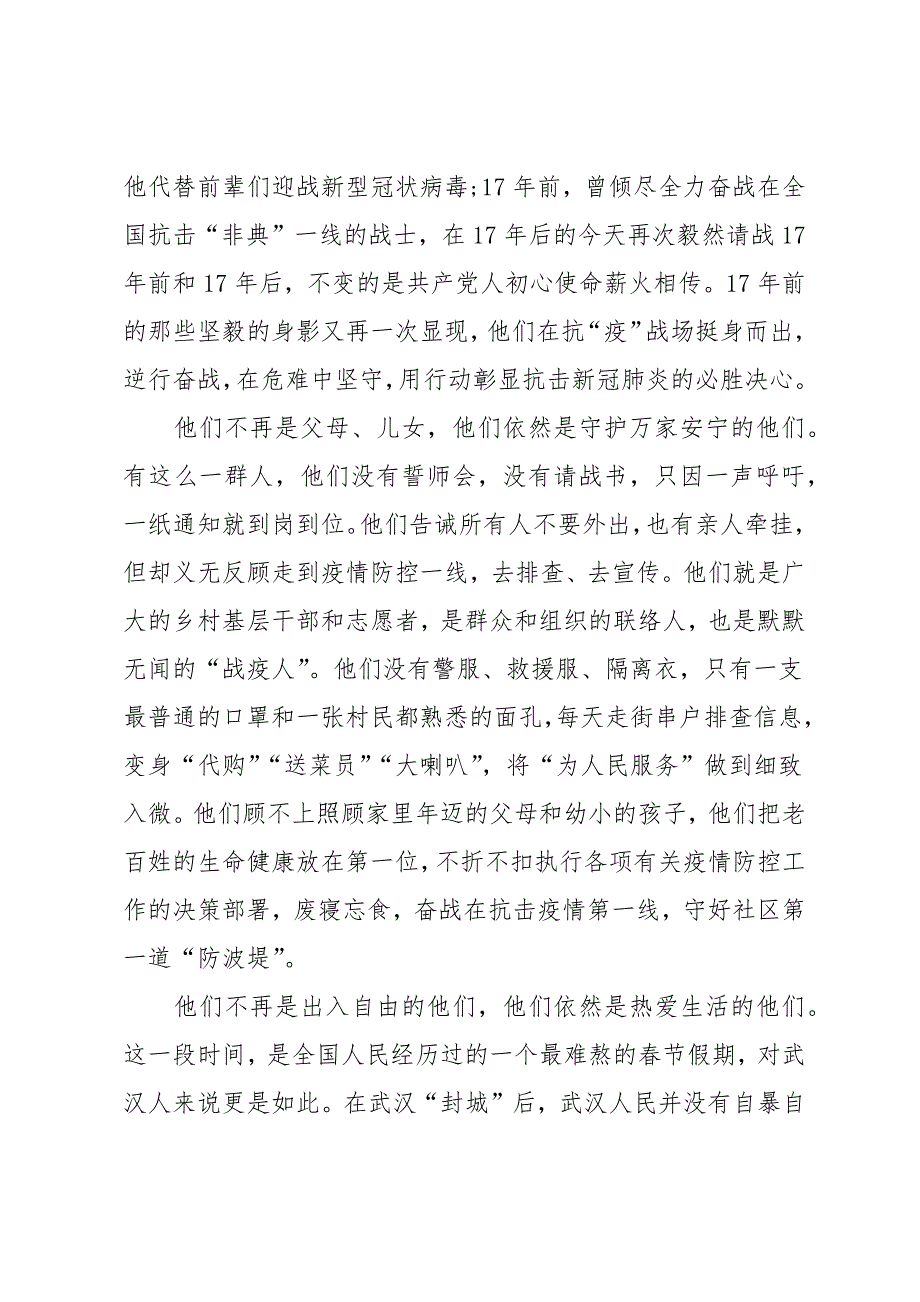 他代替前辈们迎战新型冠状病毒;17 年前，曾倾尽全力奋战在全
国抗击“非典”一线的战士，在 17 年后的今天再次毅然请战 17
年前和 17 年后，不变的是共产党人初心使命薪火相传。17 年前
的那些坚毅的身影又再一次显现，他们在抗“疫”战场挺身而出，
逆行奋战，在危难中坚守，用行动彰显抗击新冠肺炎的必胜决心。
他们不再是父母、儿女，他们依然是守护万家安宁的他们。
有这么一群人，他们没有誓师会，没有请战书，只因一声呼吁，
一纸通知就到岗到位。他们告诫所有人不要外出，也有亲人牵挂，
但却义无反顾走到疫情防控一线，去排查、去宣传。他们就是广
大的乡村基层干部和志愿者，是群众和组织的联络人，也是默默
无闻的“战疫人”。他们没有警服、救援服、隔离衣，只有一支
最普通的口罩和一张村民都熟悉的面孔，每天走街串户排查信息，
变身“代购”“送菜员”“大喇叭”，将“为人民服务”做到细致
入微。他们顾不上照顾家里年迈的父母和幼小的孩子，他们把老
百姓的生命健康放在第一位，不折不扣执行各项有关疫情防控工
作的决策部署，废寝忘食，奋战在抗击疫情第一线，守好社区第
一道“防波堤”。
他们不再是出入自由的他们，他们依然是热爱生活的他们。
这一段时间，是全国人民经历过的一个最难熬的春节假期，对武
汉人来说更是如此。在武汉“封城”后，武汉人民并没有自暴自